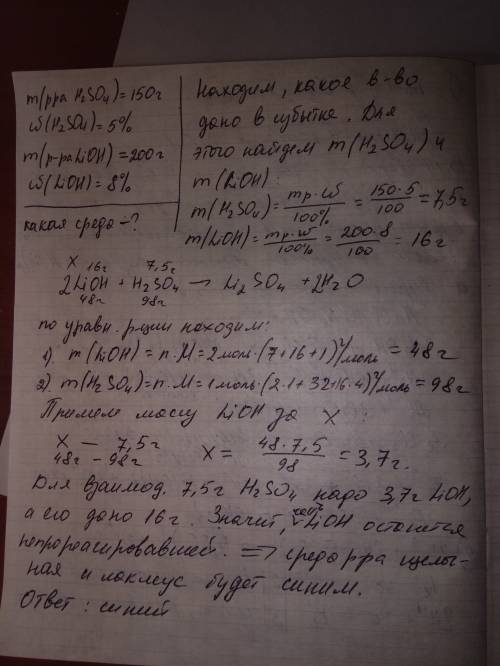 m(рра H₂SO₄)=150г
ω(H₂SO₄)=5%
m(р-раLiOH)=200г
ω(LiOH)=8%
какая среда-?
Находим, какое в-во
дано в избытке. Для
этого найдем m(H₂SO₄) и
m(LiOH):
m(H₂SO₄)= mр·ω/100% = 150·5/100 = 7,5г
m(LiOH)= mр·ω/100% = 200·8/100 = 16г
x 16г 7,5г
2LiOH + H₂SO₄ → Li₂SO₄ + 2H₂O
48г 98г
по уравн. р-ции находим:
1). m(LiOH) = n·M = 2моль·(7+16+1)г/моль = 48г
2). m(H₂SO₄)=n·M = 1моль·(2·1+32+16·4)г/моль = 98г
Примем массу LiOH за X :
X — 7,5г
48г - 98г
X = 48·7,5/98 = 3,7г.
Для взаимод. 7,5г H₂SO₄ надо 3,7г LiOH,
а его дано 16г. Значит, часть LiOH останется
непрореагировавшей. ⟹ среда рра щелоч-
ная и лакмус будет синим.
Ответ: синий